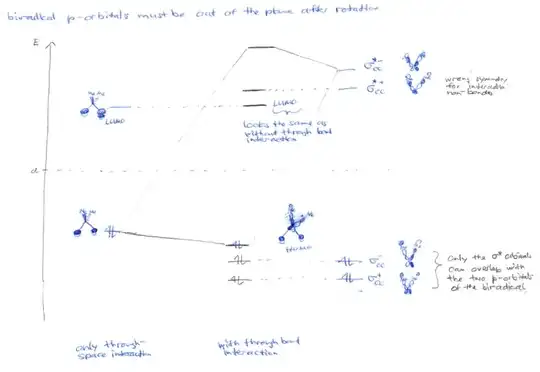 biradical p-orbitals must be out of the plane after rotation
E
α
Me Me
LUMO
LUMO
looks the same as
without through bond
interaction
σ*-
CC
σ*-
CC
wrong symmetry
for interaction
non-bonding
Me Me
HOMO
σ-
CC
σ+
CC
Only the σ* orbitals
can overlap with
the two p-orbitals
of the biradical
only through-
space interaction
with through bond
interaction